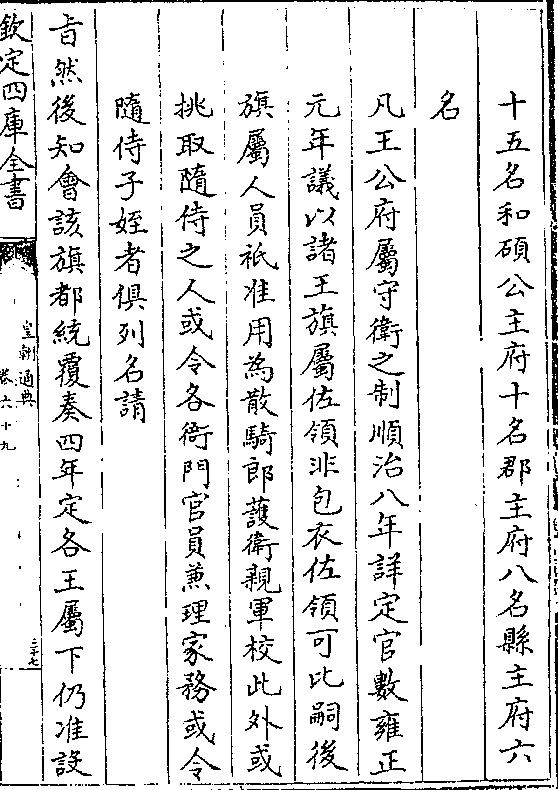 十五名和碩公主府十名郡主府八名縣主府六
名
凡王公府屬守衛之制順治八年詳定官數雍正
元年議以諸王旗屬佐領非包衣佐領可比嗣後
旗屬人員祇准用為散騎郎護衛親軍校此外或
挑取隨侍之人或令各衙門官員兼理家務或令
隨侍子姪者俱列名請
旨然後知會該旗都統覆奏四年定各王屬下仍准設
欽定四庫全書
皇朝通典
卷六十九
三十七